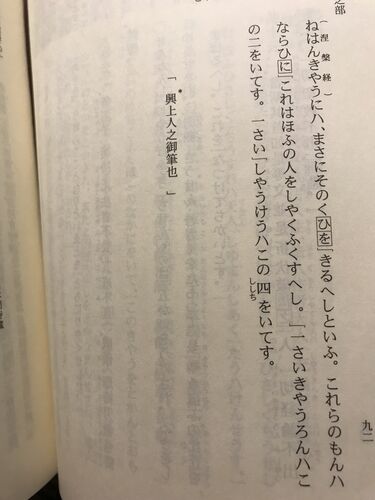 之部
九二
（涅槃経）
ねはんきやうにハ、まさにそのくひを「きるへしといふ。これらのもんハ
ならひに「これはほふの人をしやくふくすへし。「一さいきやうろんハこ
の二をいてす。一さい「しやうけうハこの四をいてす。
ししち
「*興上人之御筆也 」